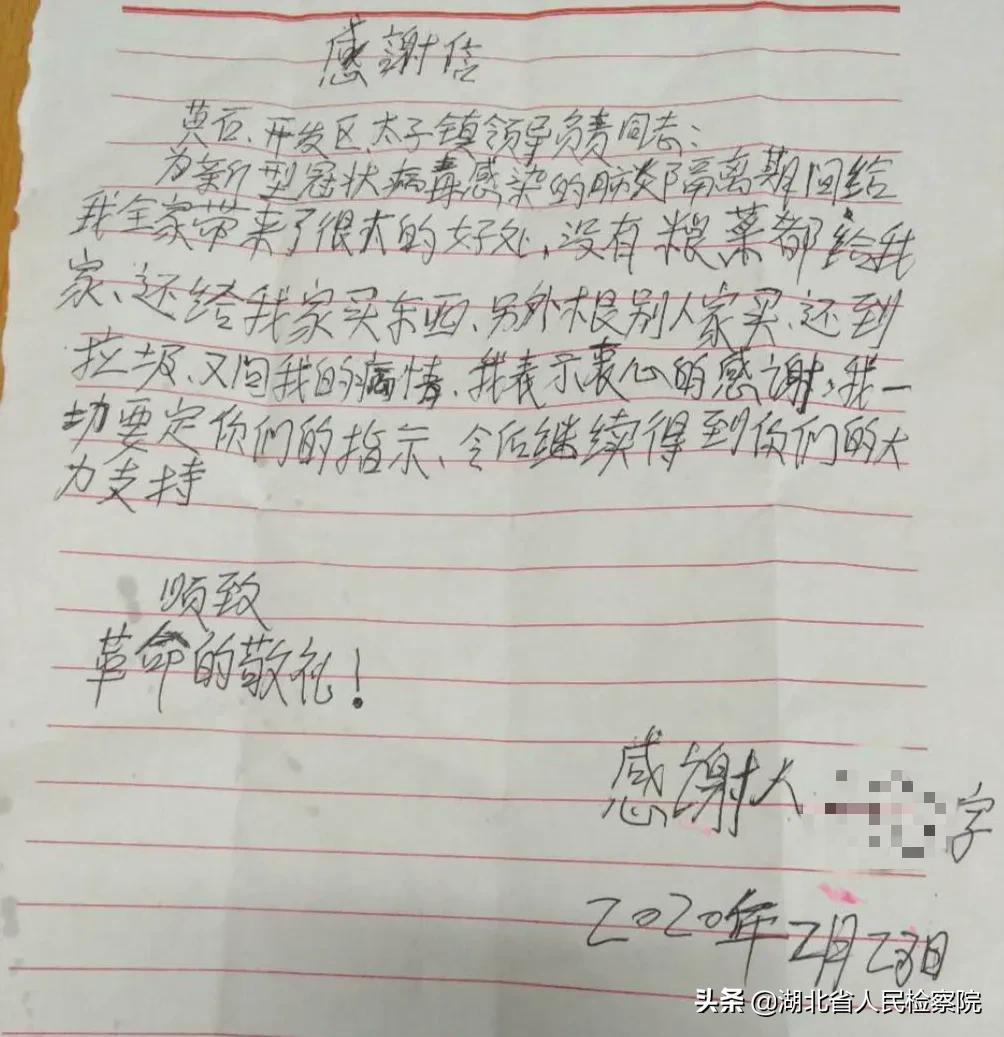 感謝信
黄石、开发区太子镇领导负责同志：
为新型冠状病毒感染的肺炎隔离期间给
我全家带来了很大的好处、没有粮菜都给我
家、还给我家买东西、另外根别人家买、还到
垃圾、又问我的病情、我表示衷心的感谢，我一
切要定你们的指示、今后继续得到你们的大
力支持
顺致
革命的敬礼！
感谢人 字
2020年2月23日
头条 @湖北省人民检察院